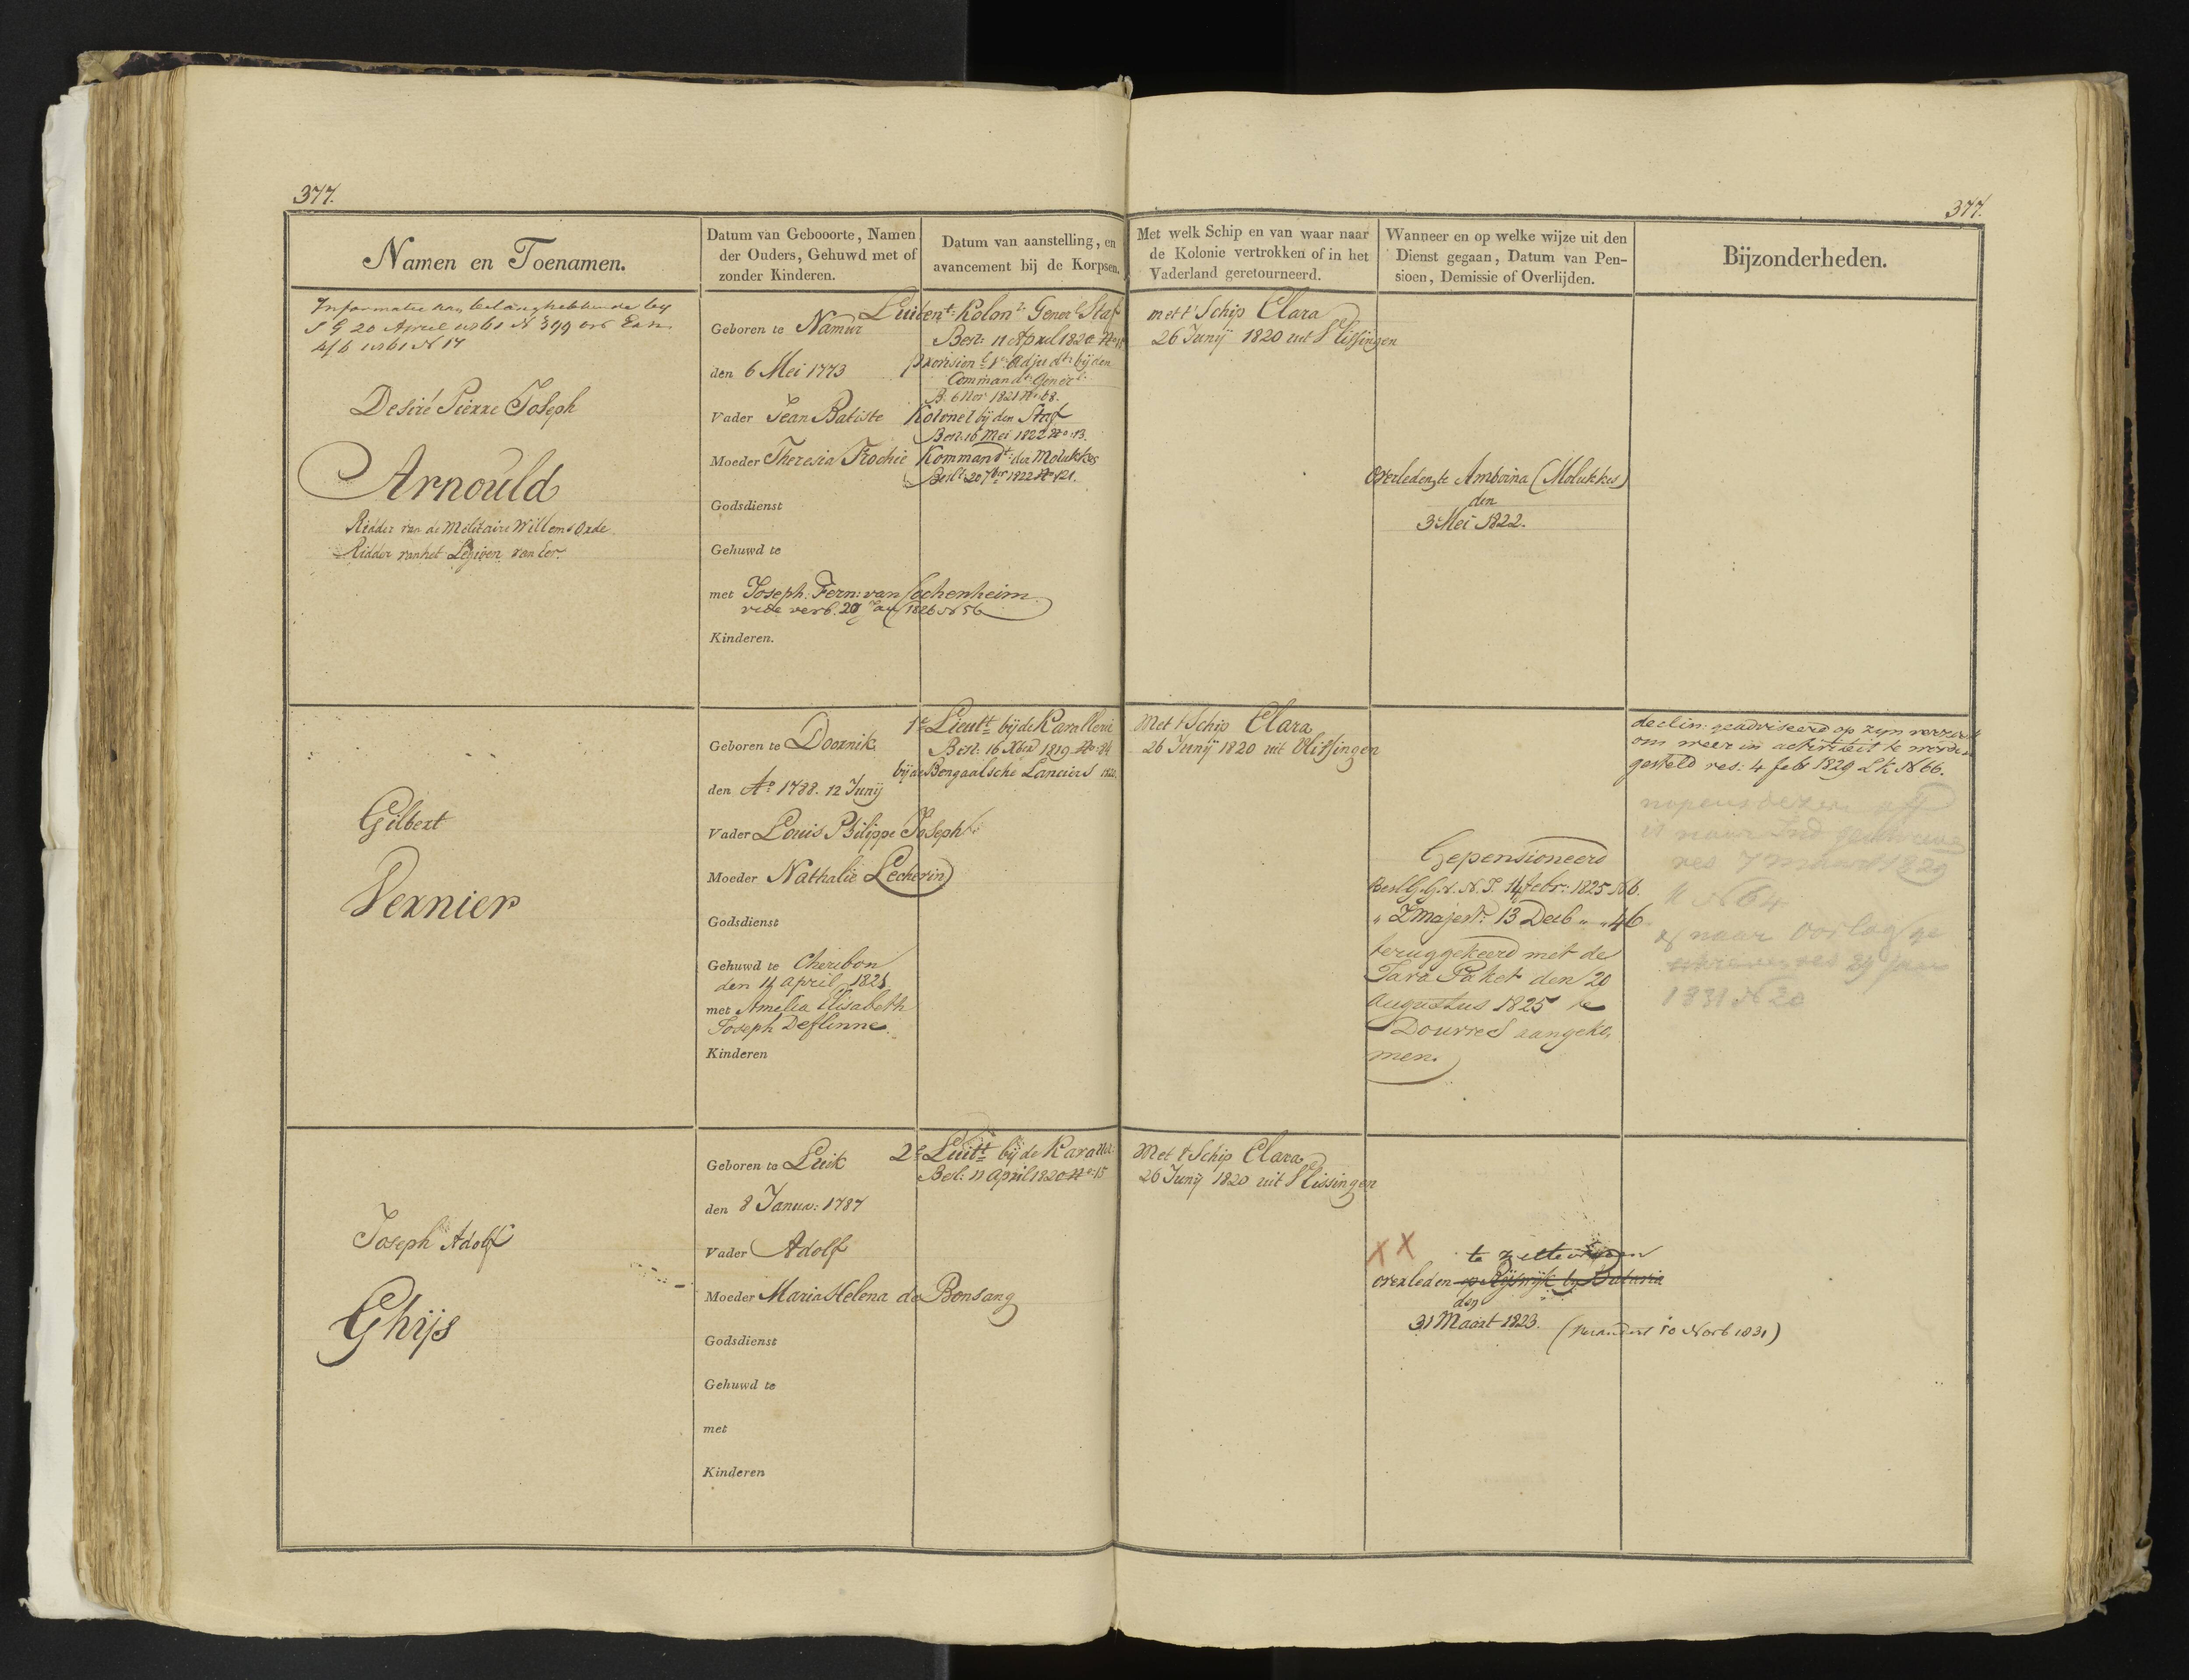 377.
377.
Namen en Toenamen.
Datum van Gebooorte, Namen
der Ouders, Gehuwd met of
zonder Kinderen.
Datum van aanstelling, en
avancement bij de Korpsen.
Met welk Schip en van waar naar
de Kolonie vertrokken of in het
Vaderland geretourneerd.
Wanneer en op welke wijze uit den
Dienst gegaan, Datum van Pen-
sioen, Demissie of Overlijden.
Bijzonderheden.
Informatie aan belanghebbende bij
20 April 1861 N 399
N 17
Desiré Pierre Joseph
Arnould
Ridder van de Militaire Willems Orde
Ridder van het Legioen van Eer.
Geboren te Namur
den 6 Mei 1773
Vader Jean Batiste
Moeder Theresia Frochie
Godsdienst
Gehuwd te
met Joseph: Fern: van Lochenheim
vide verb. 20 Jan 1826 N 56
Kinderen.
Luitent: Kolonl: Generl Staf
Besl: 11 April 1820 No 15
provisionl 1e Adjudt: bij den
Commandt: Generl:
B. 6 Nov 1821 No 68.
Kolonel bij den Staf
Besl: 16 Mei 1822 No 13.
Kommandt: der Molukkos
Beslt 20 7ber 1822 No 21.
met t' Schip Clara
26 Junij 1820 uit Vlissingen
Overleden te Amboina (Molukkes)
den
3 Mei 1822.
Gilbert
Vernier
Geboren te Doornik
den Ao 1788. 12 Junij
Vader Louis Philippe Joseph
Moeder Nathalie Lecherin
Godsdienst
Gehuwd te Cheribon
den 14 april 1821
met Amelia Elisabeth
Joseph Deflinne.
Kinderen
1e Lieutt bij de Kavallerie
Besl: 16 Xber 1819 No 84
bij de Bengaalsche Lanciers 1822
Met t' Schip Clara
26 Junij 1820 uit Vlissingen
Gepensioneerd
Besl G.G.v.N.I. 14 febr: 1825 N 6.
" Z Majest: 13 Decb " " 46
teruggekeerd met de
Java Paket den 20
Augustus 1825 te
Douvres aangeko,
men.
declin: geadviseerd op zijn verzoek
om weer in activiteit te worden
gesteld res: 4 feb 1829 L k N 66.
nopens dezen off
is naar Ind geschreven
res 7 maart 1829
N 64
& naar Oorlog ge
schreven res 29 Jan
1831 N 20
Joseph Adolf
Ghijs
Geboren te Luik
den 8 Janua: 1787
Vader Adolf
Moeder Maria Helena de Bonsang
Godsdienst
Gehuwd te
met
Kinderen
2e Luitt bij de Kavalle
Besl: 11 April 1820 No 15
Met t' Schip Clara
26 Junij 1820 uit Vlissingen
XX
overleden op Rijswijk bij Batavia
den
31 Maart 1823. ( 10 Novb 1831)